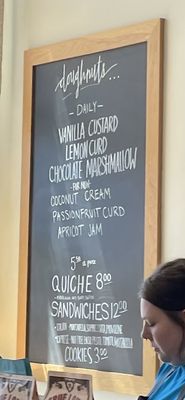 doughnuts...
- DAILY -
VANILLA CUSTARD
LEMON CURD
CHOCOLATE MARSHMALLOW
- FOR NOW -
COCONUT CREAM
PASSIONFRUIT CURD
APRICOT JAM
5.50 a piece
QUICHE 8.00
SANDWICHES 12.00
COOKIES 3.00